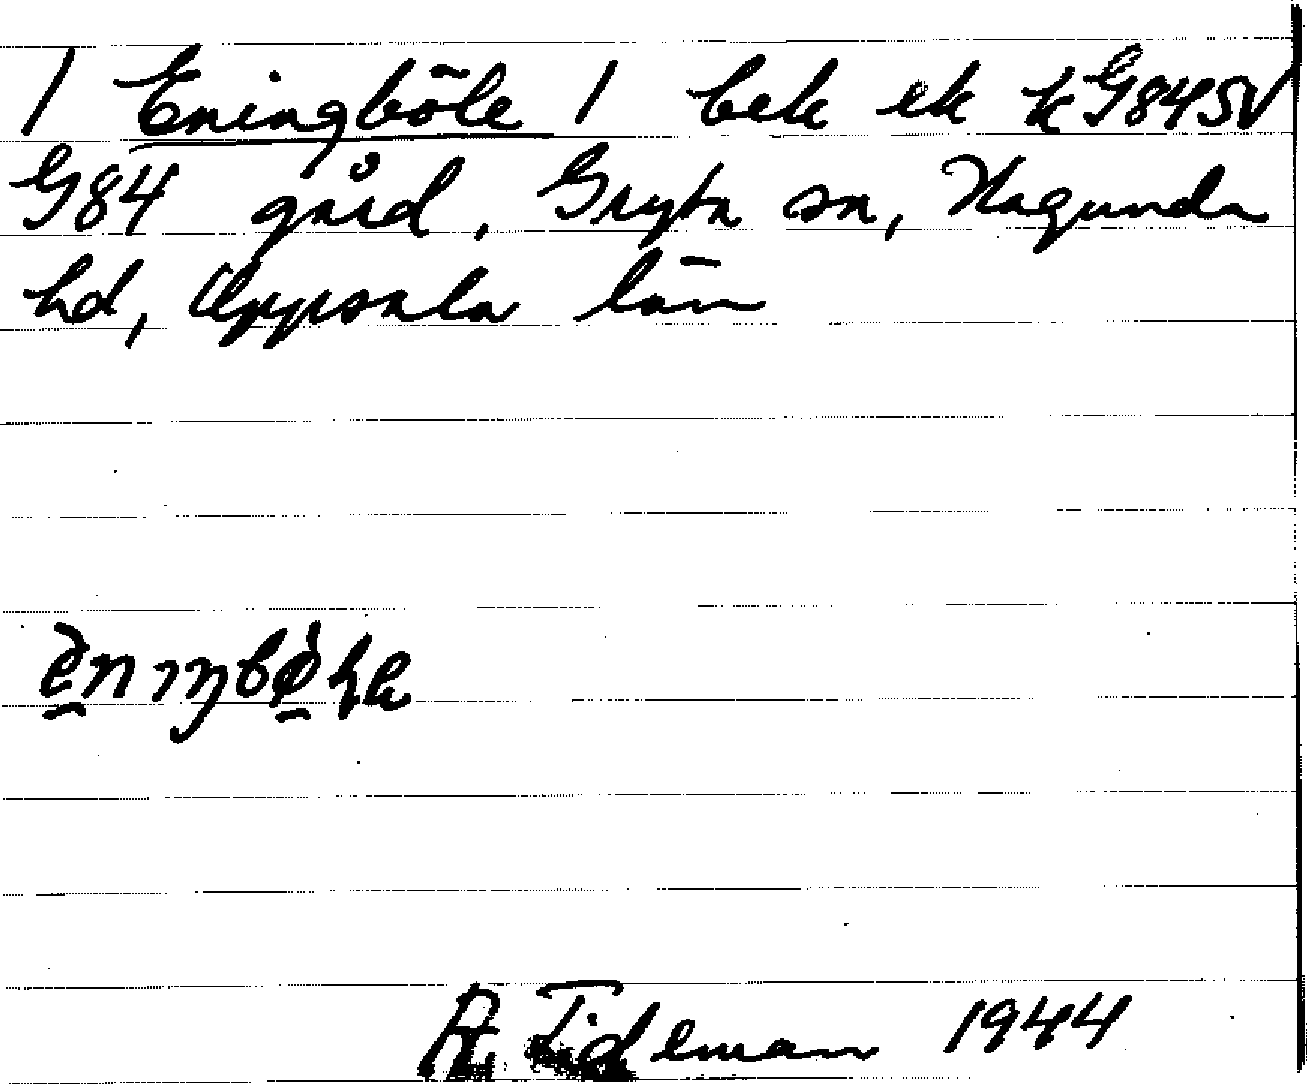 / Eningböle / bek ek k G84SV
G84 gård, Gryta sn, Hagunda
hd, Uppsala län
R Tideman 1944